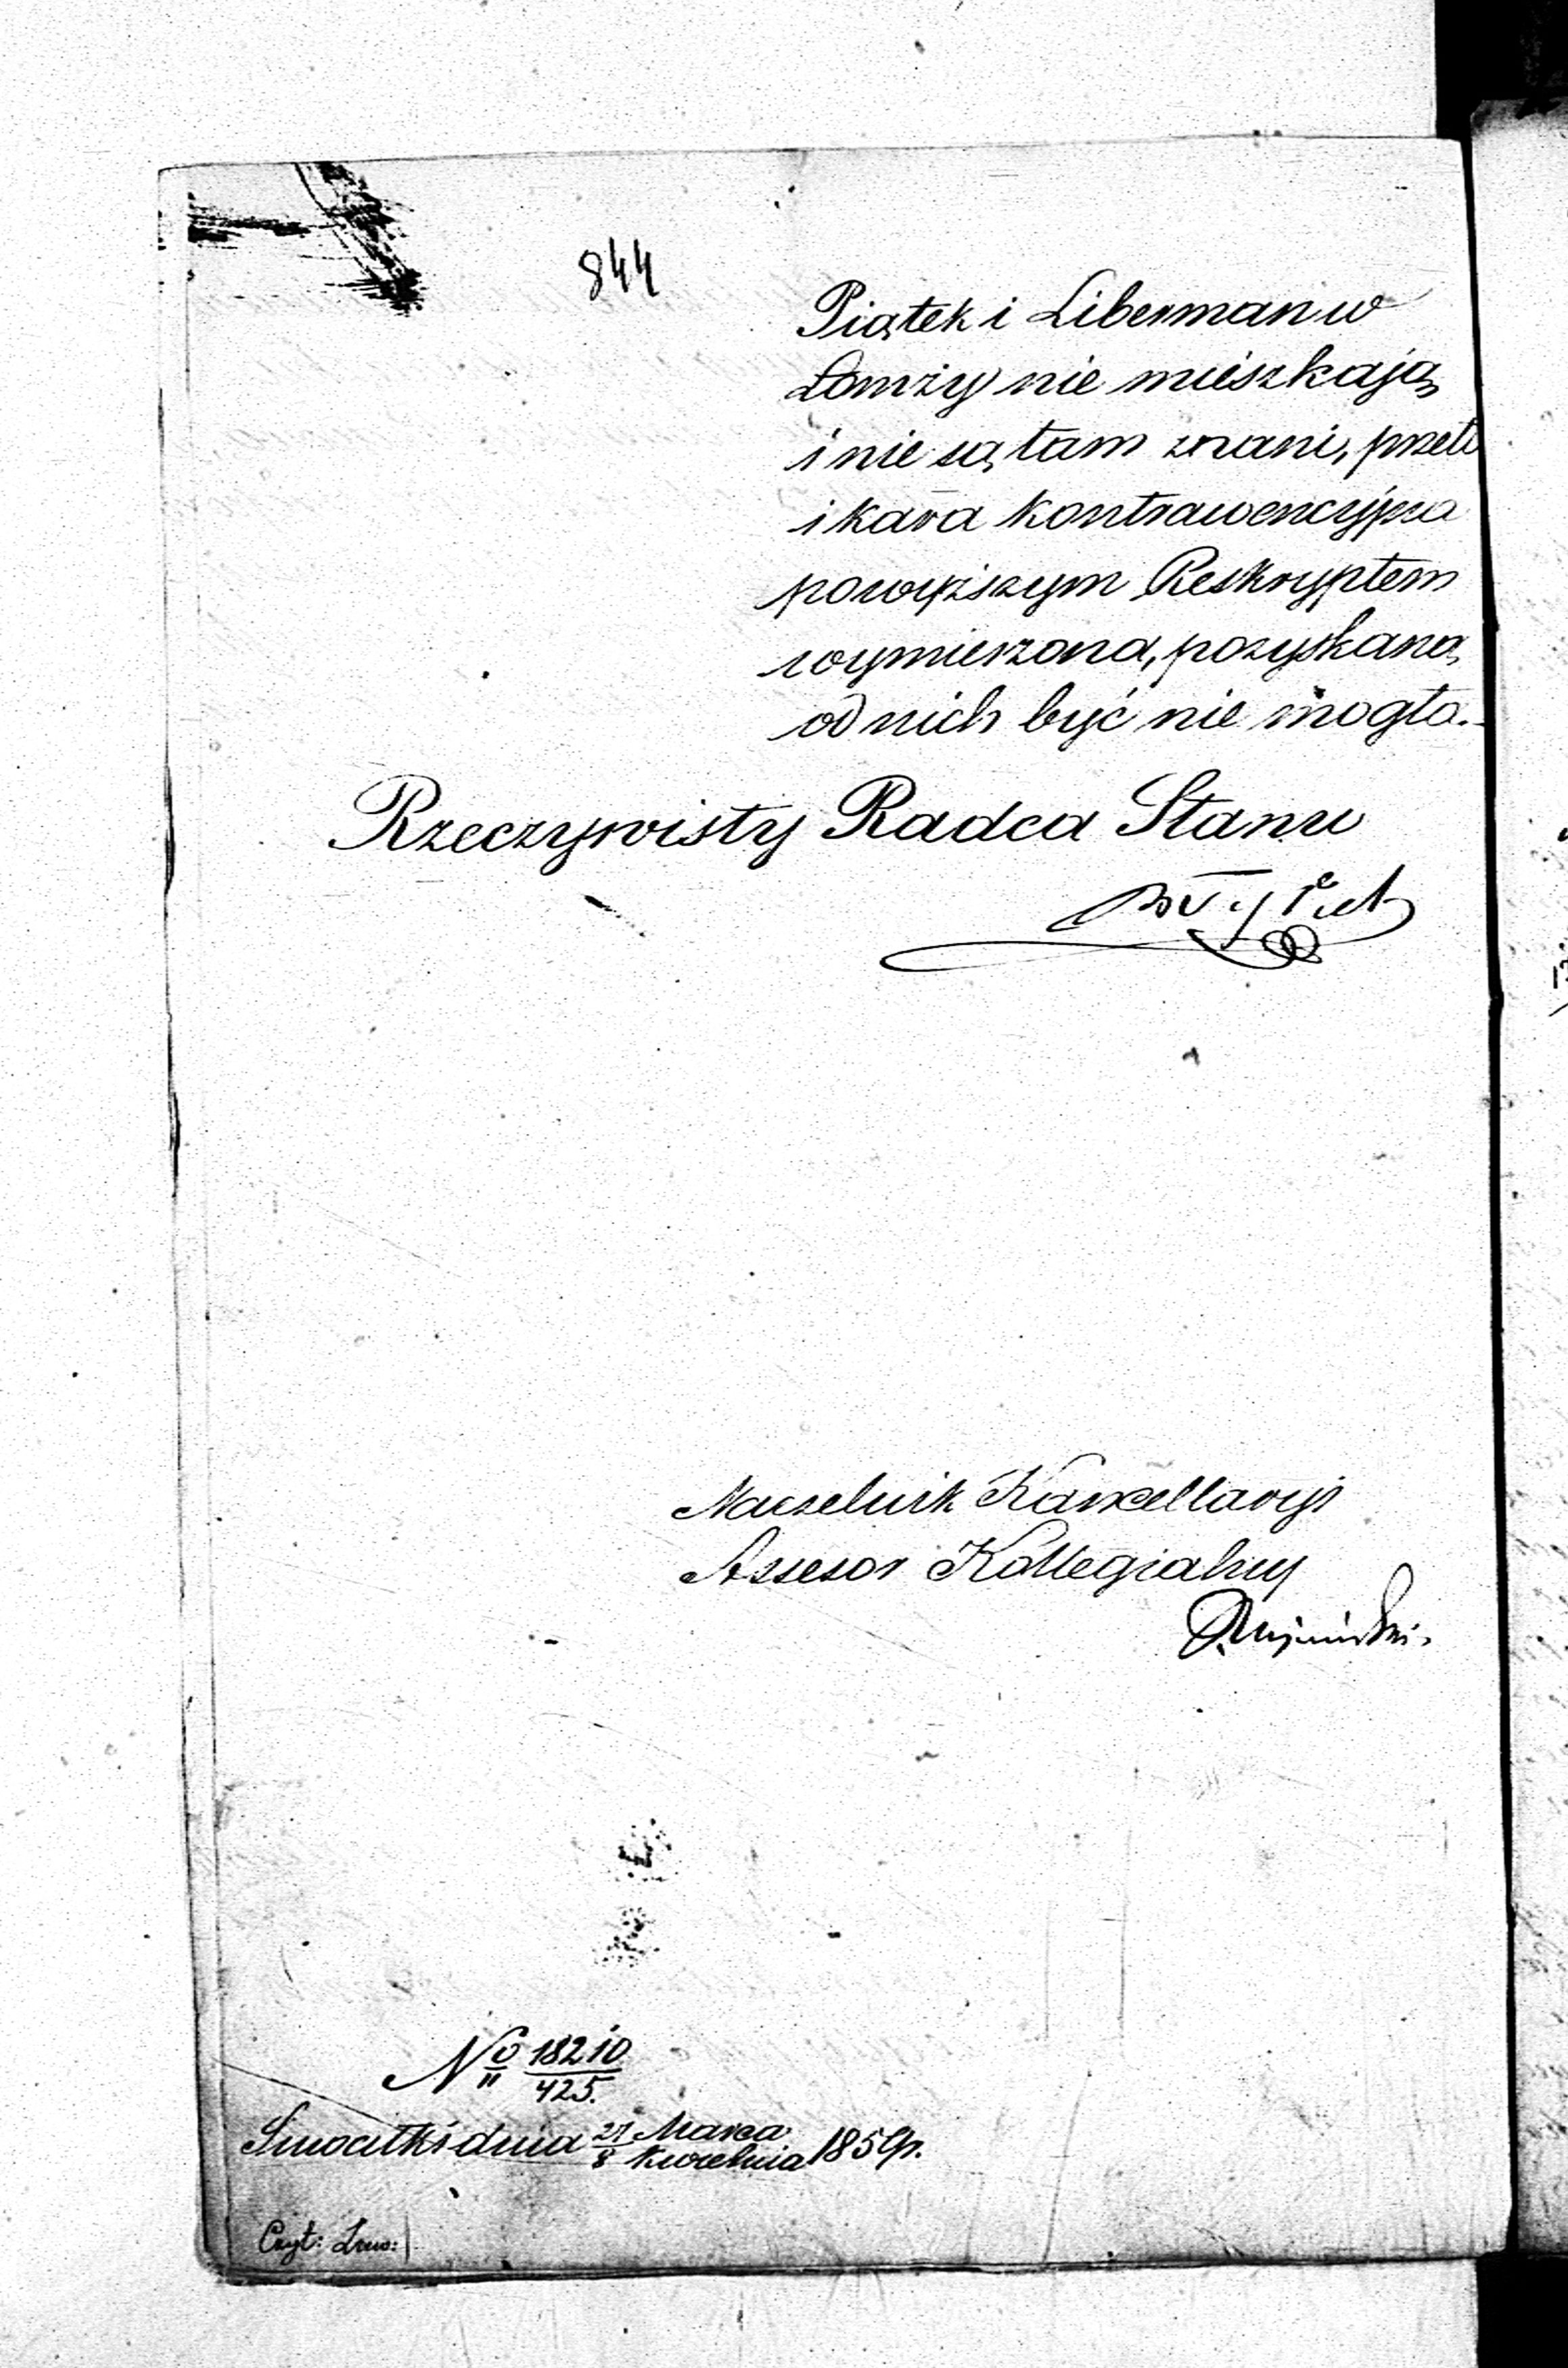 844
Piątek i Liberman w
Łomży nie mieszkają
i nie są tam znani, przeto
i kara kontrawencyjna
powyższym Reskryptem
wymierzona, pozyskaną
od nich być nie mogła.
Rzeczywisty Radca Stanu
Naczelnik Kancellaryi
Assesor Kollegialny
No 18210
425.
Suwałki dnia 27 Marca
8 Kwietnia 1859 r.
Czyt: